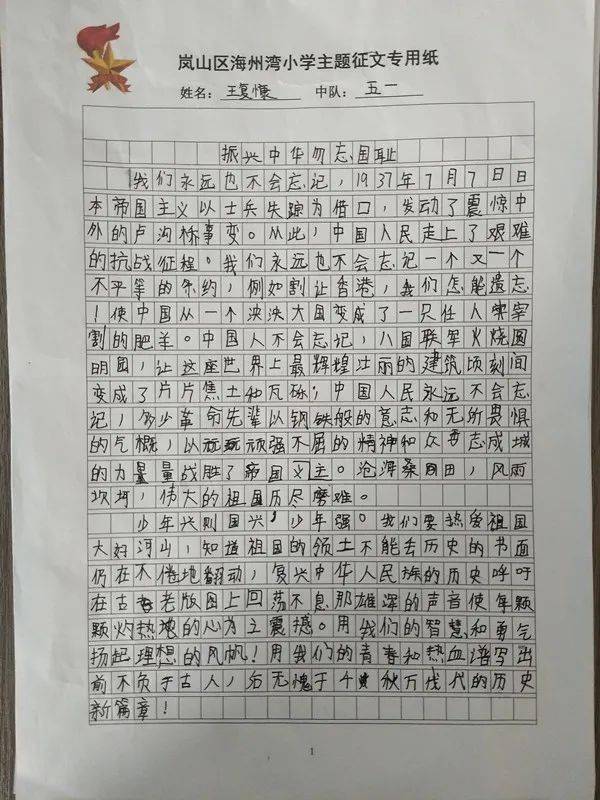 岚山区海州湾小学主题征文专用纸
姓名：王复慷 中队：五一
振兴中华勿忘国耻
我们永远也不会忘记，1937年7月7日日
本帝国主义以士兵失踪为借口，发动了震惊中
外的卢沟桥事变。从此，中国人民走上了艰难
的抗战征程。我们永远也不会忘记一个又一个
不平等的条约，例如割让香港，我们怎能遗忘
！使中国从一个泱泱大国变成了一只任人宰
割的肥羊。中国人不会忘记，八国联军火烧圆
明园，让这座世界上最辉煌壮丽的建筑顷刻间
变成了片片焦土和瓦砾；中国人民永远不会忘
记，多少革命先辈以钢铁般的意志和无所畏惧
的气概，以顽强不屈的精神和众志成城
的力量战胜了帝国主义。沧海桑田，风雨
坎坷，伟大的祖国历尽磨难。
少年兴则国兴，少年强。我们要热爱祖国
大好河山，知道祖国的领土不能去历史的书面
仍在不倦地翻动，复兴中华人民族的历史呼吁
在古老版图上回荡不息那雄浑的声音使年颗
颗灼热地的心为主震撼。用我们的智慧和勇气
扬起理想的风帆！用我们的青春和热血谱写出
前不负于古人，后无愧于千秋万代的历史
新篇章！
1